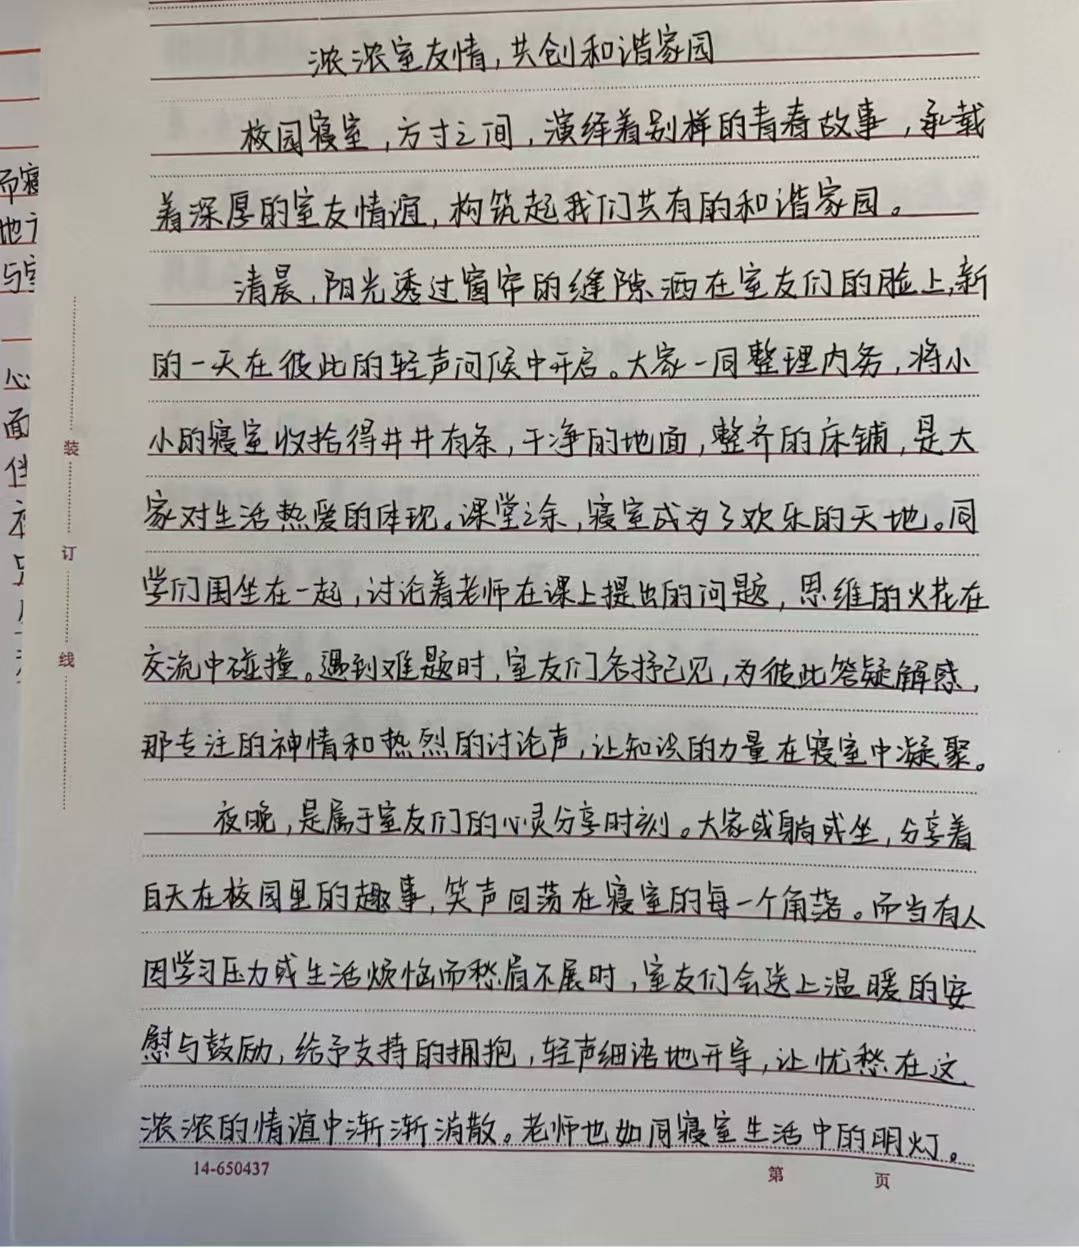 浓浓室友情，共创和谐家园
校园寝室，方寸之间，演绎着别样的青春故事，承载
着深厚的室友情谊，构筑起我们共有的和谐家园。
清晨，阳光透过窗帘的缝隙洒在室友们的脸上，新
的一天在彼此的轻声问候中开启。大家一同整理内务，将小
小的寝室收拾得井井有条，干净的地面，整齐的床铺，是大
家对生活热爱的体现。课堂之余，寝室成为了欢乐的天地。同
学们围坐在一起，讨论着老师在课上提出的问题，思维的火花在
交流中碰撞。遇到难题时，室友们各抒己见，为彼此答疑解惑，
那专注的神情和热烈的讨论声，让知识的力量在寝室中凝聚。
夜晚，是属于室友们的心灵分享时刻。大家或躺或坐，分享着
白天在校园里的趣事，笑声回荡在寝室的每一个角落。而当有人
因学习压力或生活烦恼而愁眉不展时，室友们会送上温暖的安
慰与鼓励，给予支持的拥抱，轻声细语地开导，让忧愁在这
浓浓的情谊中渐渐消散。老师也如同寝室生活中的明灯。
14-650437
第 页
装
订
线
而寝
地
与室
心
面
伴